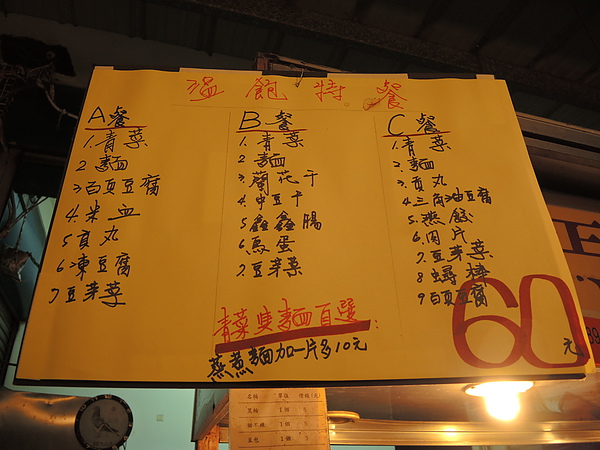 溫飽特餐
A餐
1.青菜
2麵
3百頁豆腐
4.米血
5貢丸
6凍豆腐
7豆芽菜
B餐
1.青菜
2麵
3.蘭花干
4.中豆干
5鑫鑫腸
6.鳥蛋
7.豆芽菜
C餐
1.青菜
2.麵
3.貢丸
4.三角油豆腐
5.燕餃
6.肉片
7.豆芽菜
8蟳棒
9百頁豆腐
60元
青菜與麵自選
蒸煮麵加一片多10元
名稱 單位 價格(元)
1個
1個
1個